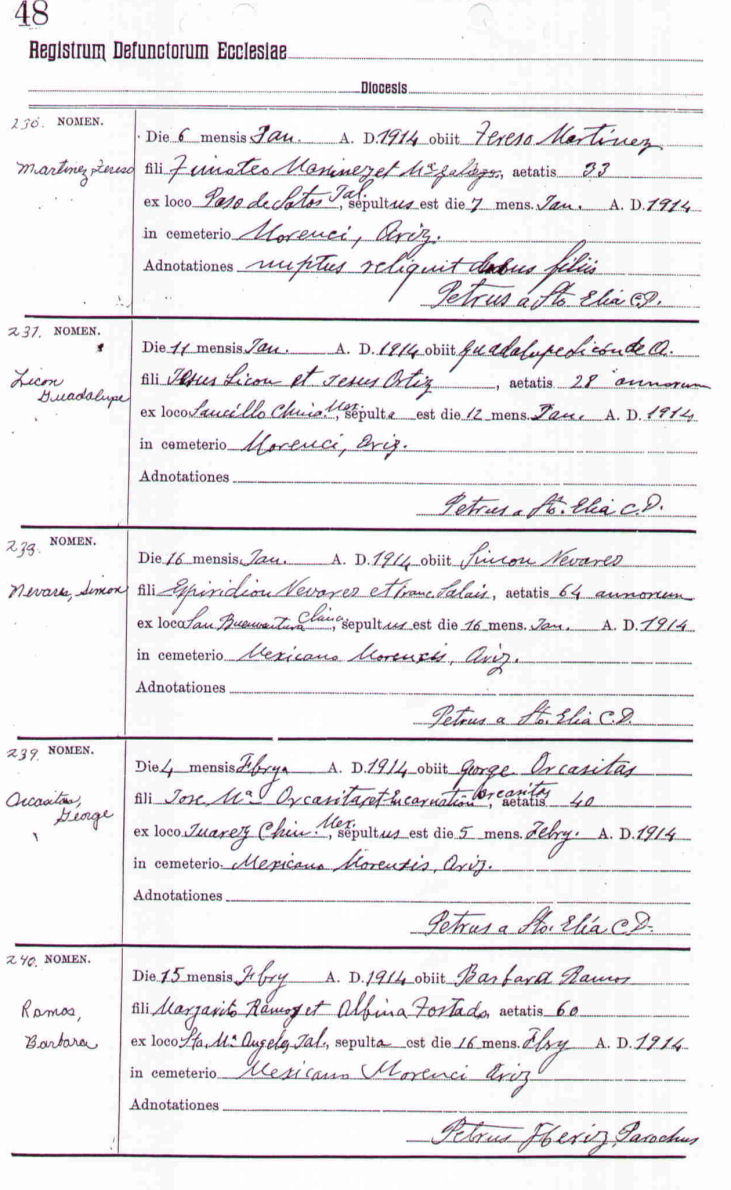 48
Registrum Defunctorum Ecclesiae
Diocesis
236. NOMEN.
Martinez, Tereso
Die 6 mensis Jan. A. D. 1914 obiit Tereso Martinez
fili Timoteo Marinez et Mª aetatis 33
ex loco Paso de Sotos Jal., sepultus est die 7 mens. Jan. A. D. 1914
in cemeterio Morenci, Ariz.
Adnotationes nuptus reliquit duobus filiis
Petrus a Sto. Elia C.D.
237. NOMEN.
Licon Guadalupe
Die 11 mensis Jan. A. D. 1914 obiit Guadalupe Licón de O.
fili Jesus Licon et Jesus Ortiz, aetatis 28 annorum
ex loco Saucillo Chih. Mex. sepulta est die 12 mens. Jan. A. D. 1914
in cemeterio Morenci, Ariz.
Adnotationes
Petrus a Sto. Elia C.D.
238. NOMEN.
Nevares, Simon
Die 16 mensis Jan. A. D. 1914 obiit Simon Nevares
fili Espiridion Nevares et Franc. Salais, aetatis 64 annorum
ex loco San Buenaventura sepultus est die 16 mens. Jan. A. D. 1914
in cemeterio Mexicano Morensis, Ariz.
Adnotationes
Petrus a Sto. Elia C.D.
239. NOMEN.
Orcasitas, George
Die 4 mensis Febrya A. D. 1914 obiit George Orcasitas
fili Jose Mª Orcasitas et Encarnation Orcasitas, aetatis 40
ex loco Juarez Chih. Mex. sepultus est die 5 mens. Febry. A. D. 1914
in cemeterio Mexicano Morensis, Ariz.
Adnotationes
Petrus a Sto. Elía C.D.
240. NOMEN.
Ramos, Barbara
Die 15 mensis Febry A. D. 1914 obiit Barbara Ramos
fili Margarito Ramos et Albina Tostado, aetatis 60
ex loco Sta. Mª Angeles, Jal., sepulta est die 16 mens. Febry A. D. 1914
in cemeterio Mexicano Morenci Ariz
Adnotationes
Petrus Heriz Parochus